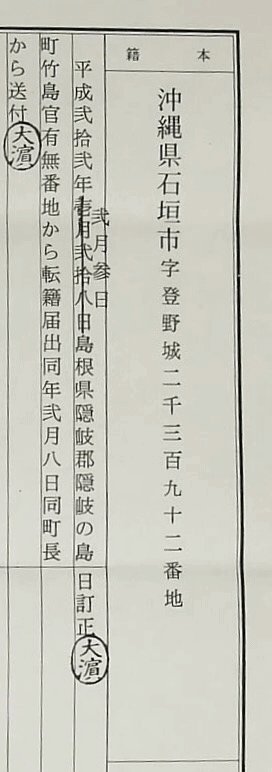 本籍
沖縄県石垣市字登野城二千三百九十二番地
平成弐拾弐年壱月弐拾八日島根県隠岐郡隠岐の島
弐月参日
日訂正
大濵
町竹島官有無番地から転籍届出同年弐月八日同町長
から送付
大濵